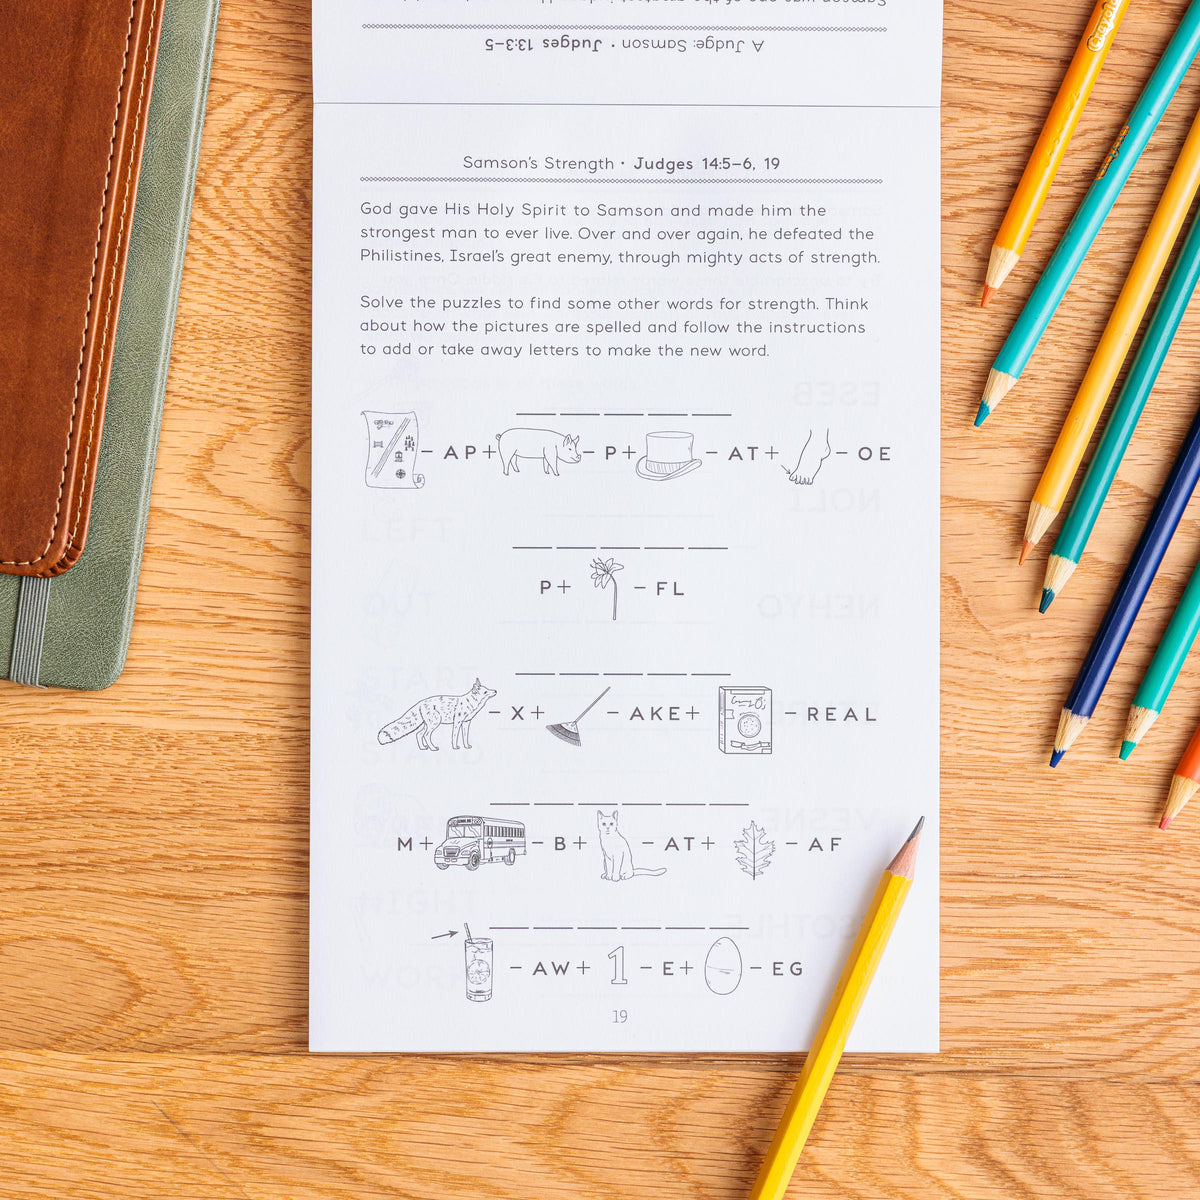 A Judge: Samson • Judges 13:3–5
Samson's Strength • Judges 14:5–6, 19
God gave His Holy Spirit to Samson and made him the
strongest man to ever live. Over and over again, he defeated the
Philistines, Israel's great enemy, through mighty acts of strength.
Solve the puzzles to find some other words for strength. Think
about how the pictures are spelled and follow the instructions
to add or take away letters to make the new word.
– AP + – P + – AT + – OE
P + – FL
– X + – AKE + – REAL
M + – B + – AT + – AF
– AW + 1 – E + – EG
19
Crayola
ESEB
NOLI
LEFT
OUT
NEHYO
START
STAND
VESNE
RIGHT
WORK